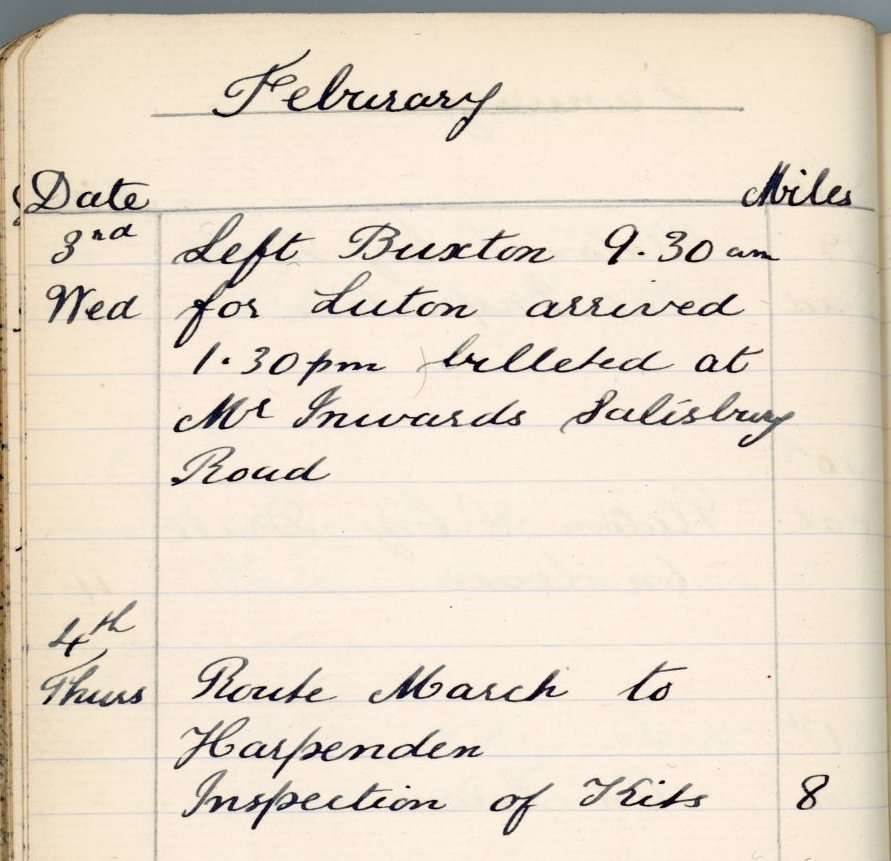 Feburary
Date Miles
3rd Left Buxton 9.30 am
Wed for Luton arrived
1.30pm billeted at
Mr Inwards Salisbury
Road
4th
Thurs Route March to
Harpenden
Inspection of Kits 8